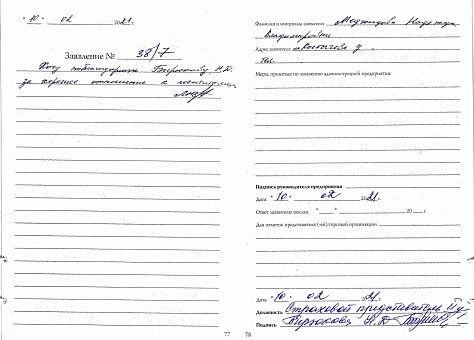 " 10 " 02 2021г.
Заявление № 38/7
Хочу поблагодарить Бирюкову Н.В.
за хорошее отношение к посетителям
77
Фамилия и инициалы заявителя Надежда
Владимировна
Адрес заявителя
тел.
Меры, принятые по заявлению администрацией предприятия:
Подпись руководителя предприятия
Дата "10" 02 2021г.
Ответ заявителю послан "___" 20 г.
Для отметок представителя (-ей) торговой организации
Дата "10" 02 2021г.
Должность Страховой представитель
Подпись
78